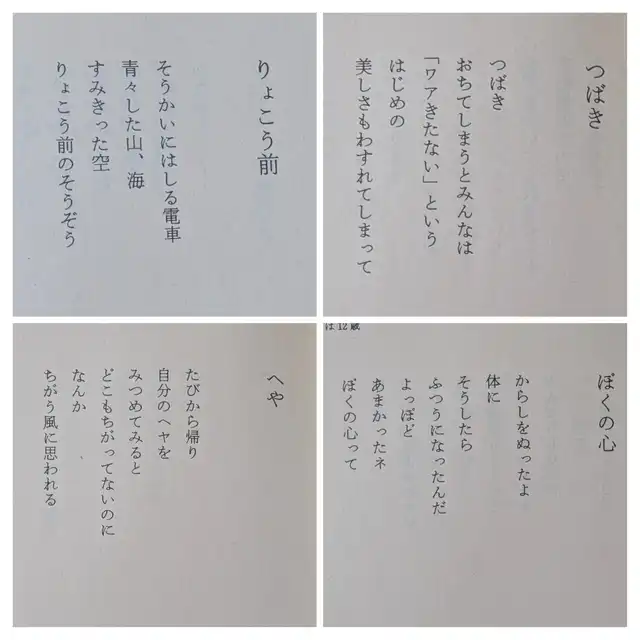 りょこう前
そうかいにはしる電車
青々した山、海
すみきった空
りょこう前のそうぞう
つばき
つばき
おちてしまうとみんなは
「ワアきたない」という
はじめの
美しさもわすれてしまって
へや
たびから帰り
自分のヘヤを
みつめてみると
どこもちがってないのに
なんか
ちがう風に思われる
は12歳
ぼくの心
からしをぬったよ
体に
そうしたら
ふつうになったんだ
よっぽど
あまかったネ
ぼくの心って